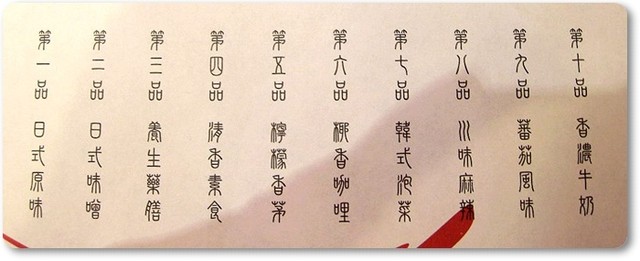 第一品 日式原味
第二品 日式味噌
第三品 養生藥膳
第四品 清香素食
第五品 檸檬香茅
第六品 椰香咖哩
第七品 韓式泡菜
第八品 川味麻辣
第九品 蕃茄風味
第十品 香濃牛奶